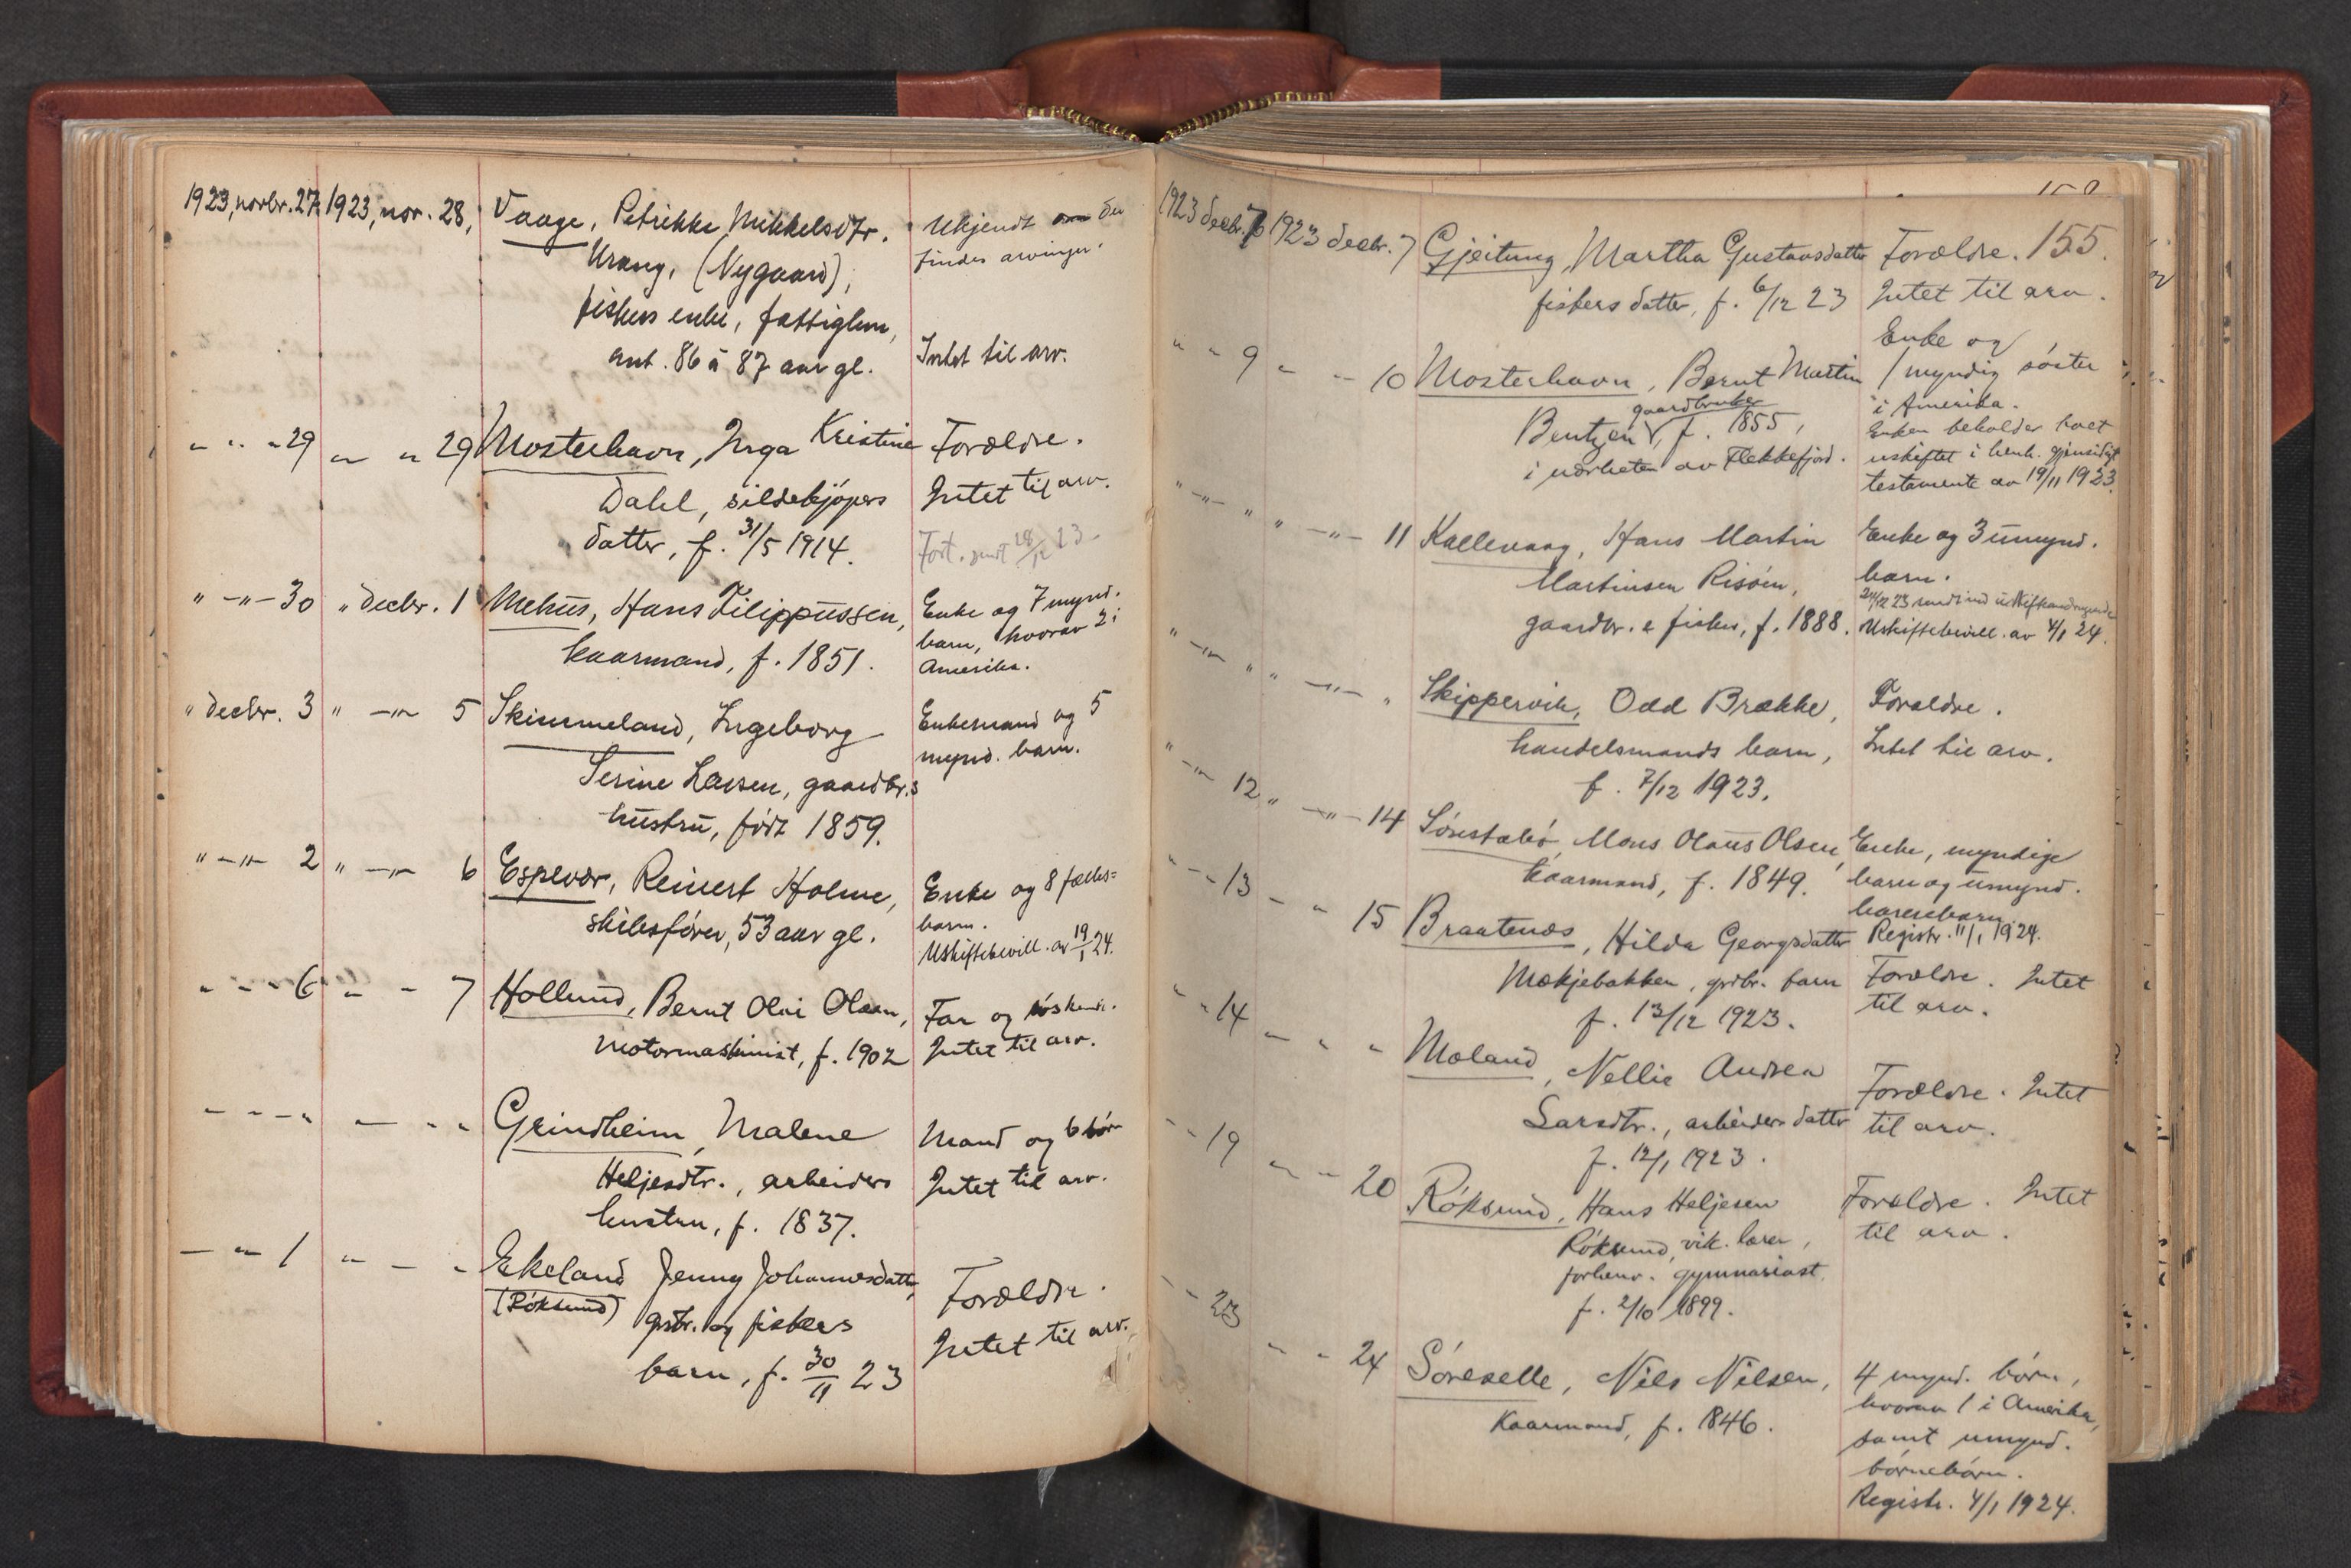 1923, novbr. 27. 1923, nov. 28, Vaage, Petrikke Mikkelsdtr. Ukjendt om der
Urang, (Nygaard), findes arvinger.
fiskers enke, fattiglem,
ant. 86 à 87 aar gl. Intet til arv.
" " " 29 " " 29 Mosterhavn, Inga Kristine Forældre.
Dahl, sildekjøpers Intet til arv.
datter, f. 31/5 1914. Fort. sendt 28/12 23
" -"- 30 " decbr. 1 Mehus, Hans Filippussen, Enke og 7 mynd.
kaarmand, f. 1851. barn, hvorav 2 i
Amerika.
" decbr. 3 " -"- 5 Skimmeland, Ingeborg Enkemand og 5
Serine Larsen, gaardbr.s mynd. barn.
hustru, født 1859.
" -"- 2 " -"- 6 Espevær, Reinert Holme, Enke og 8 fælles=
skibsfører, 53 aar gl. barn.
Uskiftebevill. av 19/1 24.
" - - 6 " - 7 Hollund, Bernt Olai Olsen, Far og søskende.
motormaskinist, f. 1902 Intet til arv.
- - - " - " " Grindheim, Malene Mand og 6 børn
Heljesdtr., arbeiders Intet til arv.
hustru, f. 1837.
- " 1 " - " Ekeland Jenny Johannesdatter, Forældre.
(Røksund) grbr. og fiskers Intet til arv.
barn, f. 30/11 23
1923 decbr. 6 1923 decbr. 7 Gjeitung, Martha Gustavsdatter Forældre. 155.
fiskers datter, f. 6/12 23 Intet til arv.
" " 9 " " 10 Mosterhavn, Bernt Martin Enke og
1 myndig søster
Bentzen, gaardbruker f. 1855, i Amerika.
i nærheten av Flekkefjord. Enken beholder boet
uskiftet i henh. gjensidigt
testamente av 19/11 1923.
" -"- " " -"- 11 Kallevaag, Hans Martin Enke og 3 umynd.
Martinsen Risøen, barn.
gaardbr. & fisker, f. 1888. 24/12 23 sendt ind
Uskiftebevill. av 4/1 24.
" -"- " " -"- " Skippervik, Odd Brække, Forældre.
handelsmands barn, Intet til arv.
f. 7/12 1923.
" -"- 12 " -"- 14 Sønstabø, Mons Olaus Olsen, Enke, myndige
kaarmand, f. 1849. barn og umynd.
barnebarn.
Registr. 11/1 1924.
" - 13 - " 15 Braatenæs, Hilda Georgsdatter Forældre. Intet
Mækjebakken, grdbr. barn til arv.
f. 13/12 1923.
" " 14 - " " Moland, Nellie Andrea Forældre. Intet
Larsdtr., arbeiders datter til arv.
f. 12/1 1923.
" " 19 " " 20 Røksund, Hans Heljesen Forældre. Intet
Røksund, vik. lærer, til arv.
forhenv. gymnasiast.
f. 2/10 1899.
" 23 " " 24 Søreselle, Nils Nilsen, 4 mynd. børn,
Kaarmand, f. 1846. hvorav 1 i Amerika,
samt umynd.
børnebørn.
Registr. 4/1 1924.